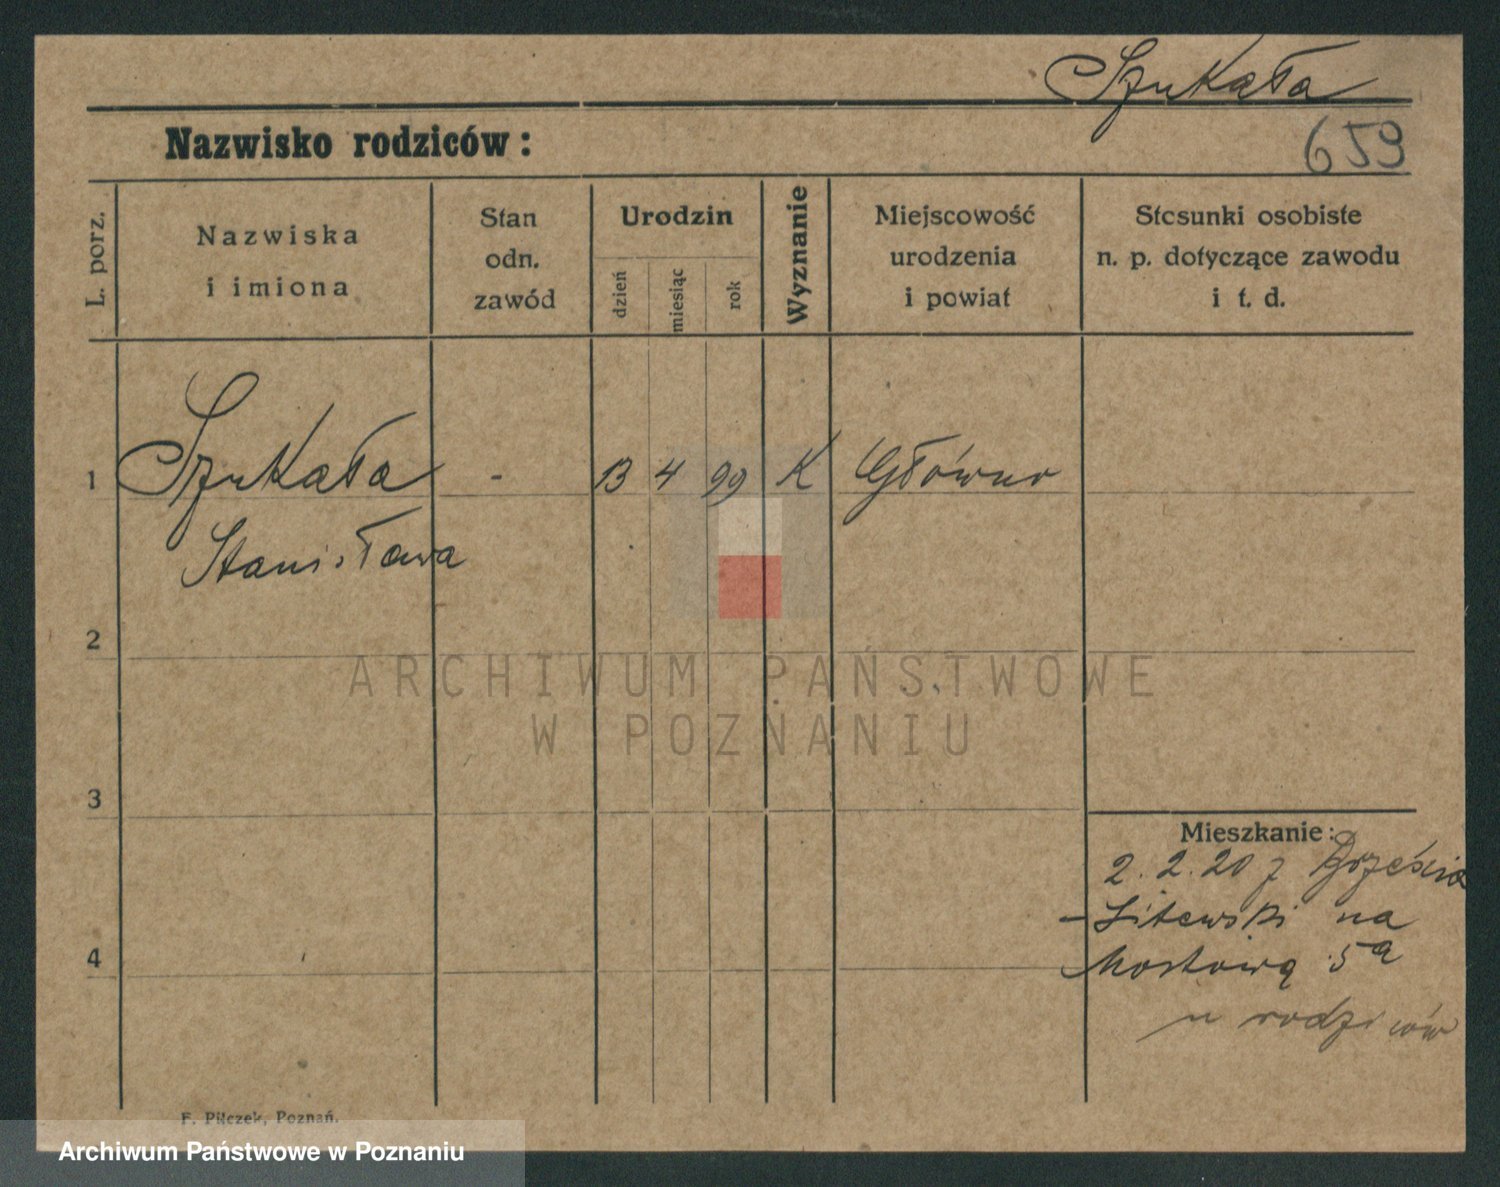 Szukała
Nazwisko rodziców:
659
L. porz.
Nazwiska
i imiona
Stan
odn.
zawód
Urodzin
dzień
miesiąc
rok
Wyznanie
Miejscowość
urodzenia
i powiat
Stosunki osobiste
n. p. dotyczące zawodu
i t. d.
1 Szukała - 13 4 99 K Główno
Stanisława
2
ARCHIWUM PAŃSTWOWE
W POZNANIU
3
Mieszkanie:
2.2.20 z Brześcia
-Litewski na
4
Mostową 5a
u rodziców
F. Pilczek, Poznań.
Archiwum Państwowe w Poznaniu